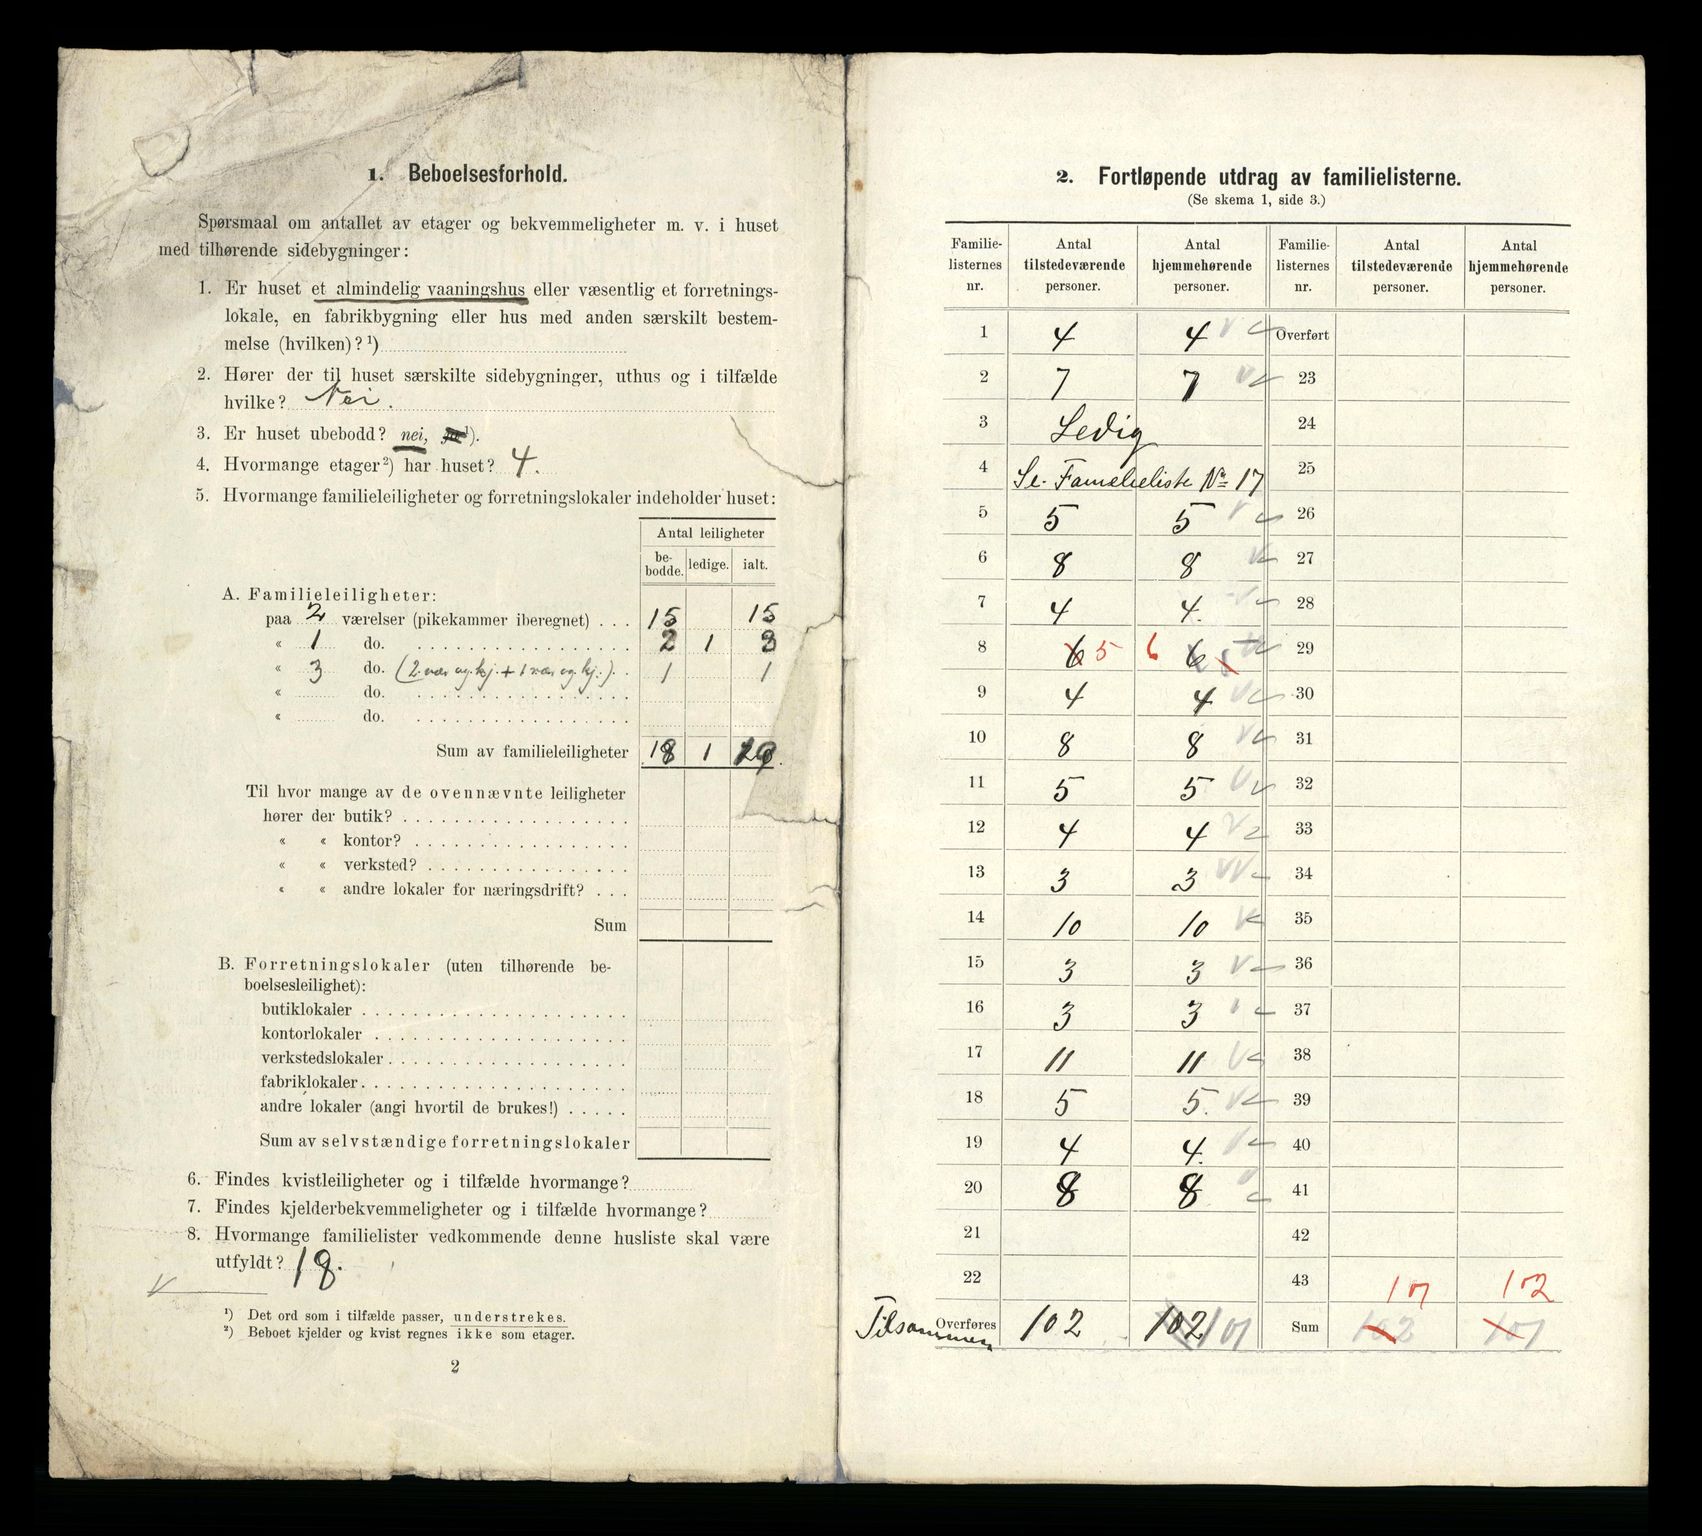 1. Beboelsesforhold.
Spørsmaal om antallet av etager og bekvemmeligheter m. v. i huset
med tilhørende sidebygninger:
1. Er huset et almindelig vaaningshus eller væsentlig et forretnings-
lokale, en fabrikbygning eller hus med anden særskilt bestem-
melse (hvilken)? ¹)
2. Hører der til huset særskilte sidebygninger, uthus og i tilfælde
hvilke? Nei.
3. Er huset ubebodd? nei, ja ¹).
4. Hvormange etager ²) har huset? 4.
5. Hvormange familieleiligheter og forretningslokaler indeholder huset:
Antal leiligheter
be-bodde. ledige. ialt.
A. Familieleiligheter:
paa 2 værelser (pikekammer iberegnet) . . . 15 15
« 1 do. 2 1 3
« 3 do. (2 vær og kj. + 1 vær og kj.) 1 1
« do.
« do.
Sum av familieleiligheter 18 1 19
Til hvor mange av de ovennævnte leiligheter
hører der butik?
« « kontor?
« « verksted?
« « andre lokaler for næringsdrift?
Sum
B. Forretningslokaler (uten tilhørende be-
boelsesleilighet):
butiklokaler
kontorlokaler
verkstedslokaler
fabriklokaler
andre lokaler (angi hvortil de brukes!)
Sum av selvstændige forretningslokaler
6. Findes kvistleiligheter og i tilfælde hvormange?
7. Findes kjelderbekvemmeligheter og i tilfælde hvormange?
8. Hvormange familielister vedkommende denne husliste skal være
utfyldt? 18.
¹) Det ord som i tilfælde passer, understrekes.
²) Beboet kjelder og kvist regnes ikke som etager.
2
2. Fortløpende utdrag av familielisterne.
(Se skema 1, side 3.)
Familie-listernes nr. Antal tilstedeværende personer. Antal hjemmehørende personer. Familie-listernes nr. Antal tilstedeværende personer. Antal hjemmehørende personer.
1 4 4 Overført
2 7 7 23
3 Ledig 24
4 Se Familieliste No 17 25
5 5 5 26
6 8 8 27
7 4 4. 28
8 6 5 6 6 5 29
9 4 4 30
10 8 8 31
11 5 5 32
12 4 4 33
13 3 3 34
14 10 10 35
15 3 3 36
16 3 3 37
17 11 11 38
18 5 5. 39
19 4 4. 40
20 8 8 41
21 42
22 43 101 102
Tilsammen Overføres 102 102 101 Sum 102 101